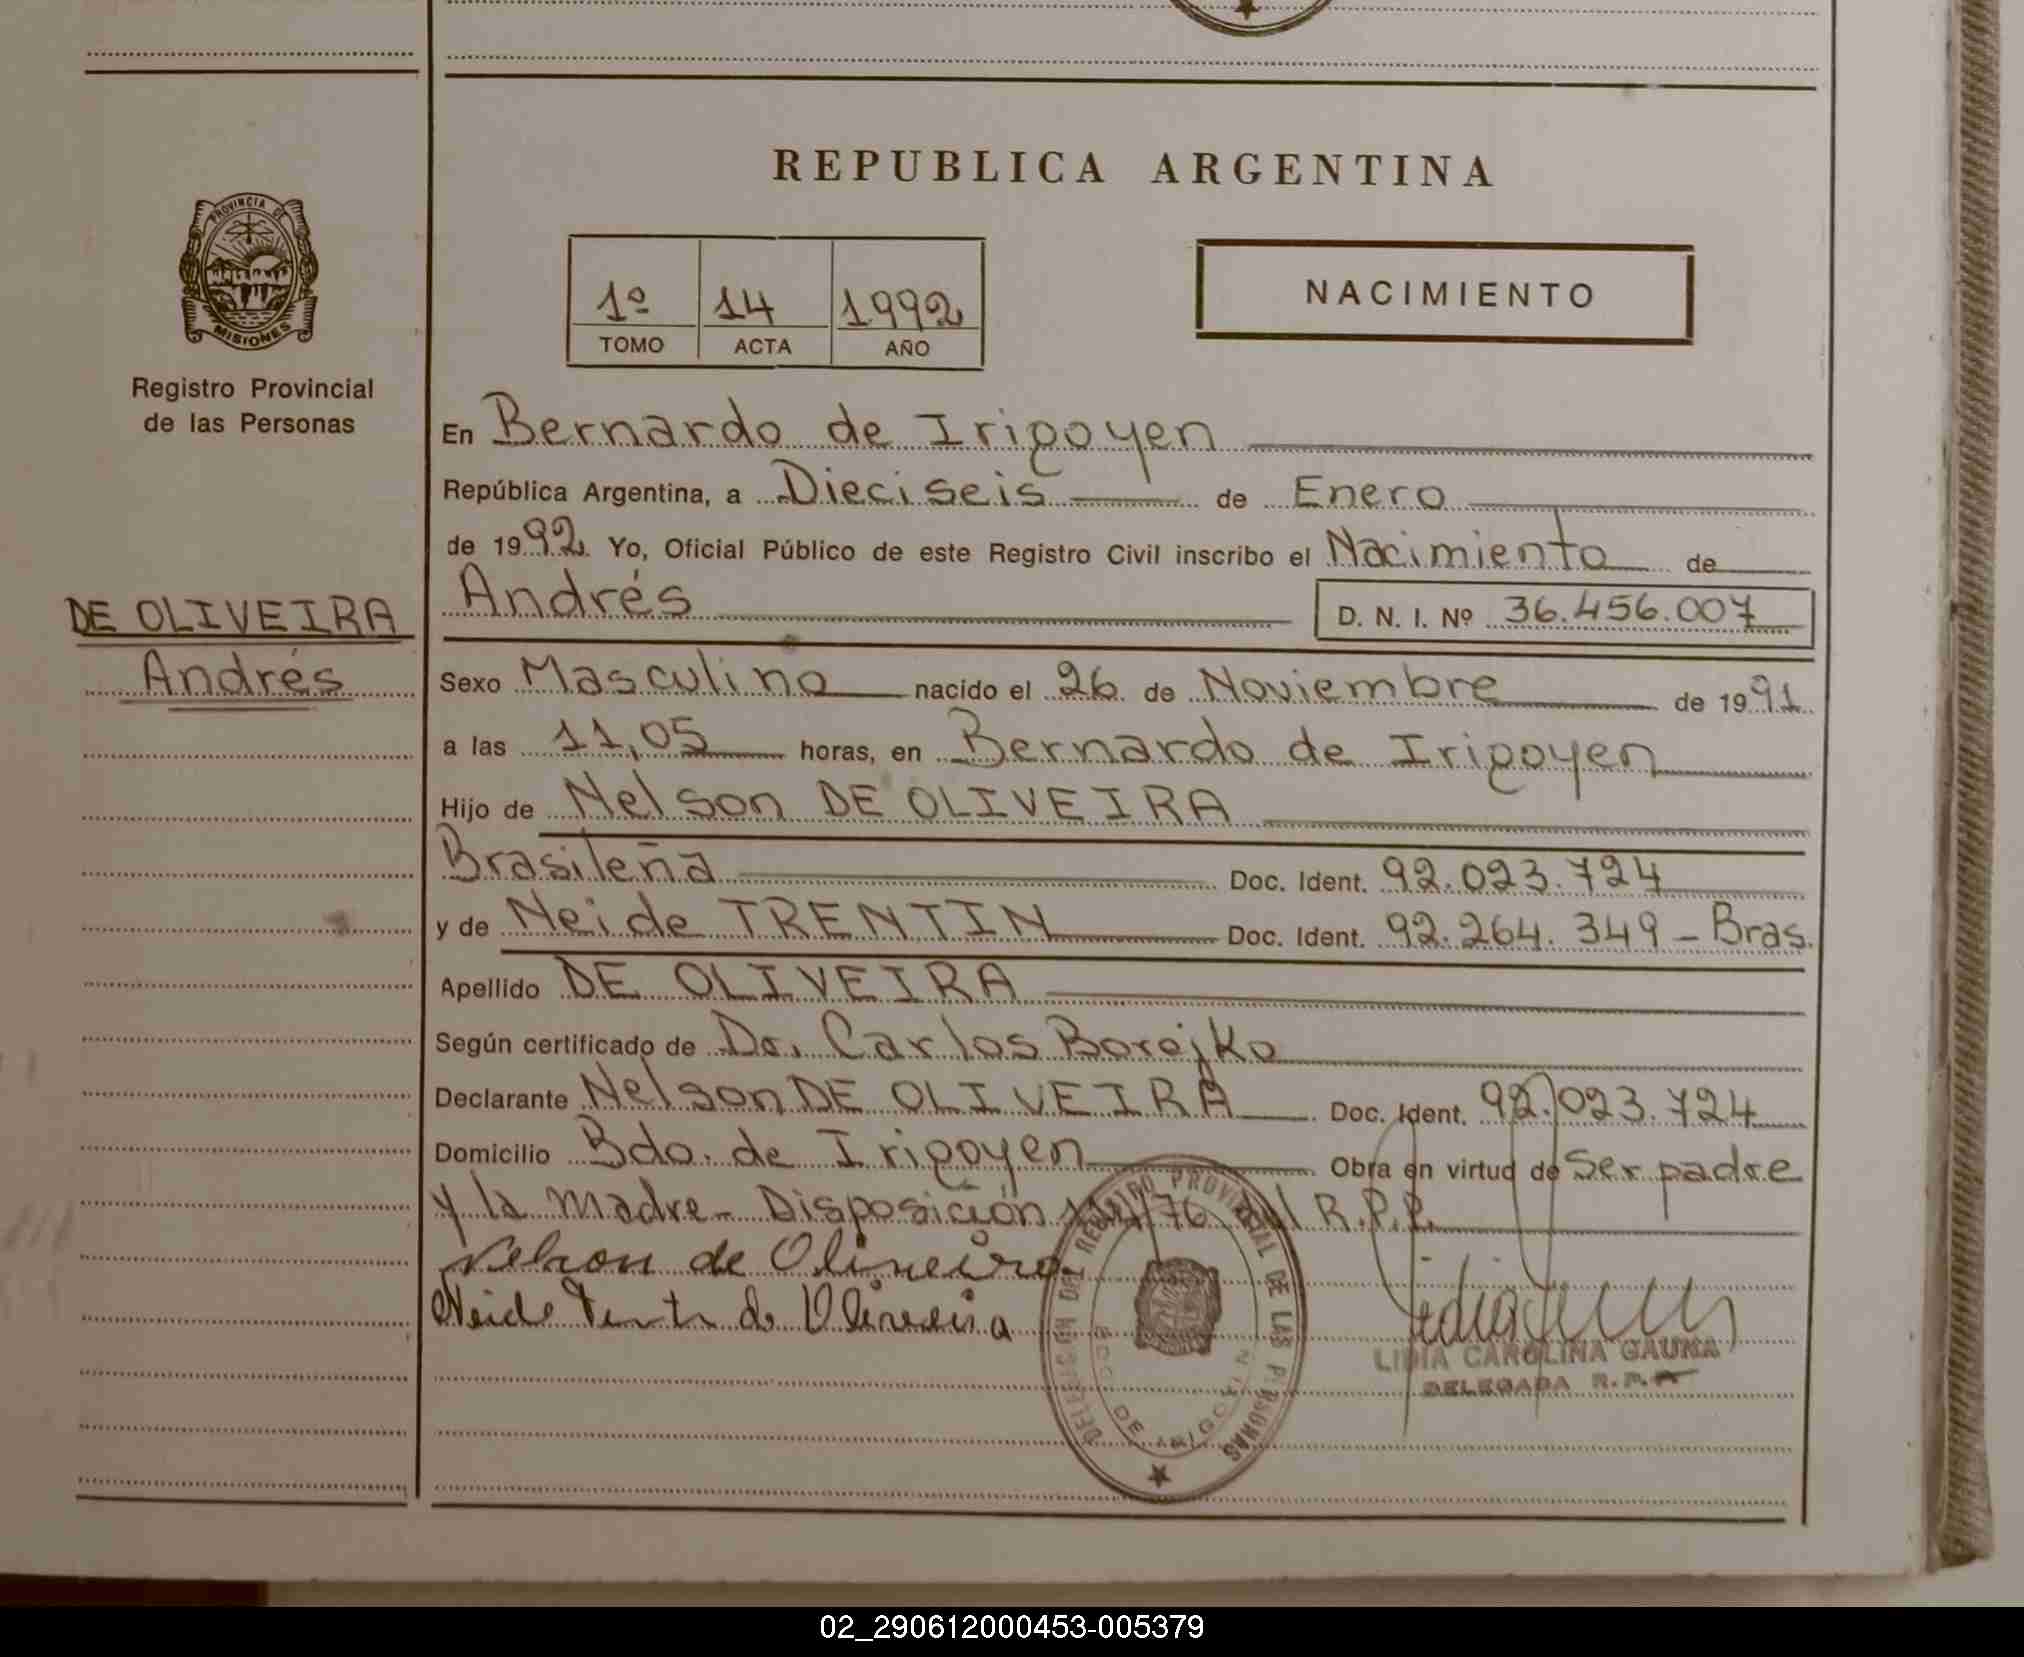 REPUBLICA ARGENTINA
PROVINCIA DE
MISIONES
Registro Provincial
de las Personas
DE OLIVEIRA
Andrés
1º 14 1992
TOMO ACTA AÑO
NACIMIENTO
En Bernardo de Irigoyen
República Argentina, a Dieciseis de Enero
de 1992 Yo, Oficial Público de este Registro Civil inscribo el Nacimiento de
Andrés D. N. I. Nº 36.456.007
Sexo Masculino nacido el 26 de Noviembre de 1991
a las 11,05 horas, en Bernardo de Irigoyen
Hijo de Nelson DE OLIVEIRA
Brasileña Doc. Ident. 92.023.724
y de Neide TRENTIN Doc. Ident. 92.264.349 - Bras.
Apellido DE OLIVEIRA
Según certificado de Dr. Carlos Borejko
Declarante Nelson DE OLIVEIRA Doc. Ident. 92.023.724
Domicilio Bdo. de Irigoyen Obra en virtud de Ser padre
y la madre - Disposición /76 del R.P.P.
Nelson de Oliveira
Neide de Oliveira
DELEGACION DEL REGISTRO PROVINCIAL DE LAS PERSONAS
BDO. DE IRIGOYEN
LIDIA CAROLINA GAUNA
DELEGADA R.P.P.
02_290612000453-005379